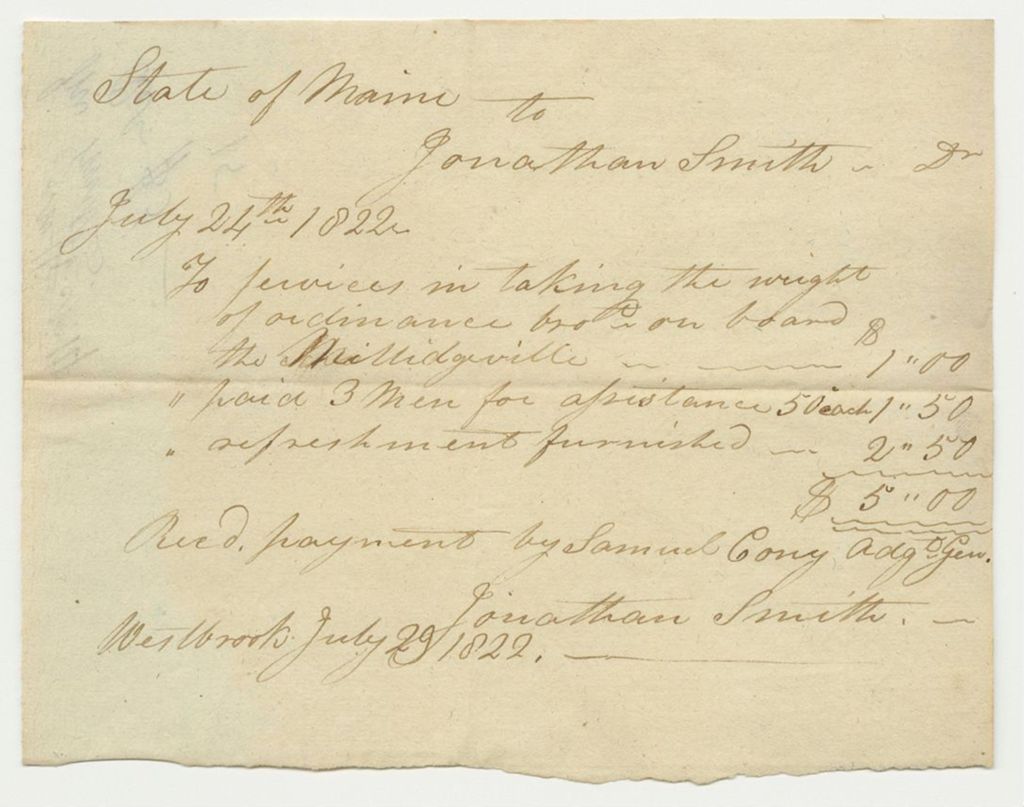 State of Maine
to
Jonathan Smith Dr
July 24th 1822
To services in taking the weight
of ordinance bro't on board
the Millidgeville $ 1"00
" paid 3 Men for assistance 50 each 1"50
" refreshment furnished 2"50
$ 5"00
Recd. payment by Samuel Cony Adgt Gen.
Jonathan Smith.
Westbrook July 29 1822.